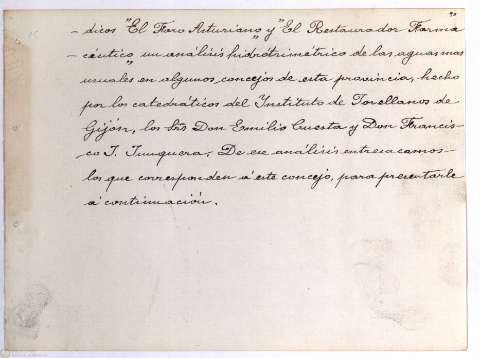 - dicos "El Faro Asturiano" y "El Restaurador Farma
- céutico", un análisis hidrótrimétrico de las aguas mas
usuales en algunos concejos de esta provincia, hecho
por los catedráticos del Instituto de Jovellanos de
Gijón, los Srs Don Emilio Cuesta y Don Francis-
co J. Junquera. De ese análisis entresacamos
los que corresponden á este concejo, para presentarle
á continuación.